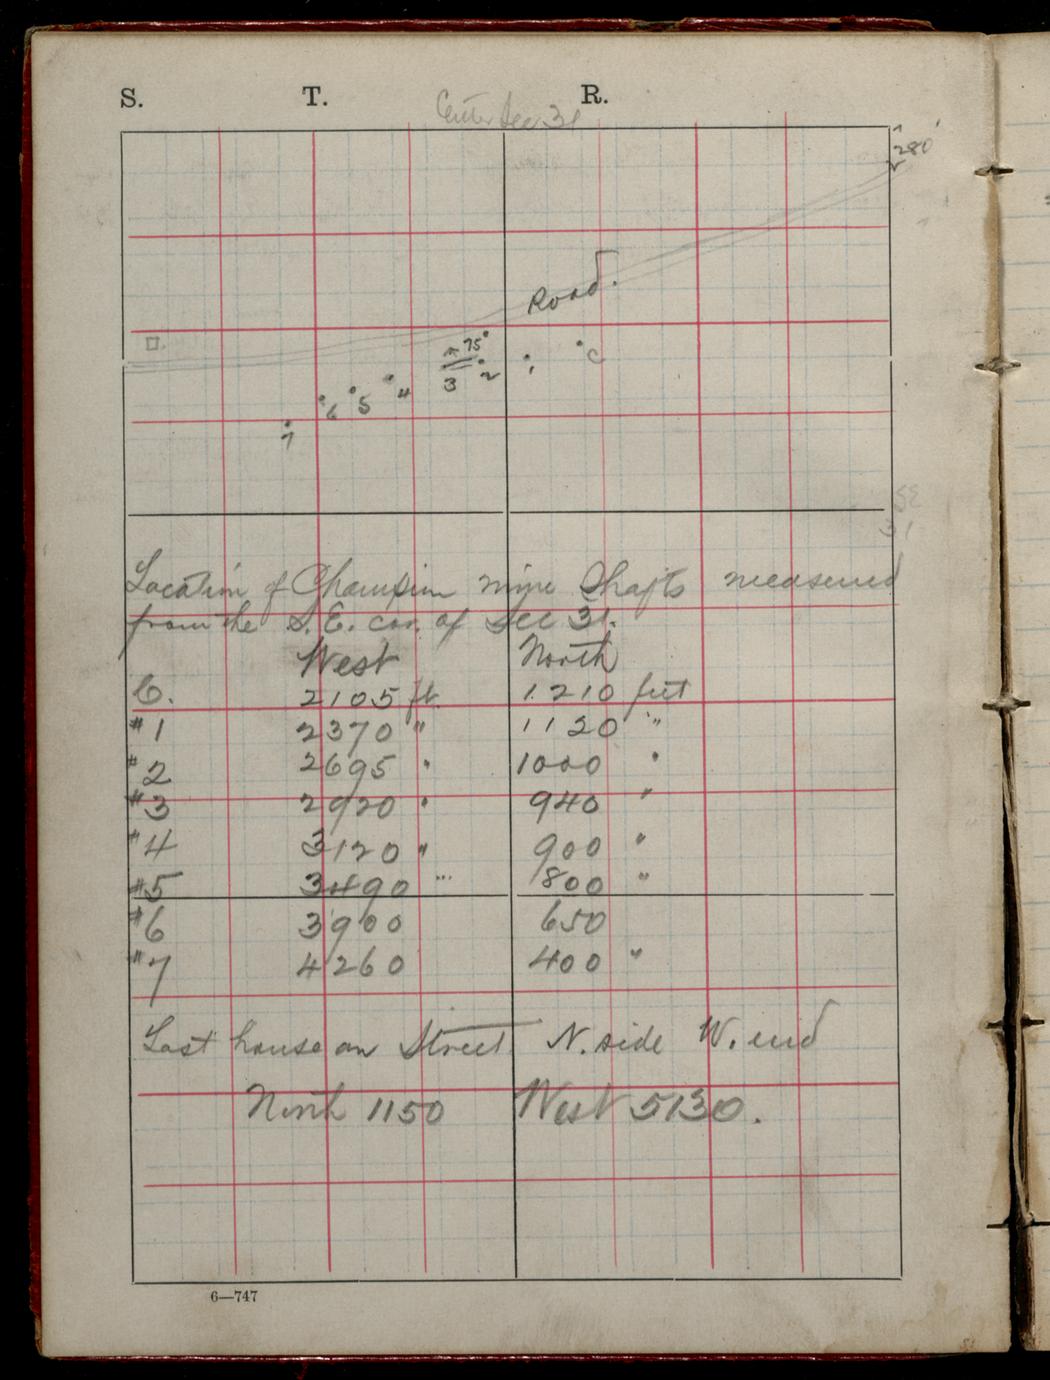 S. T. R.
Center Sec 31
280'
Road.
75'
C
1
2
3
4
5
6
7
SE
31
Location of Champion mine Shafts measured
from the S. E. cor. of Sec 31.
West North
C. 2105 ft. 1210 feet
#1 2370 " 1120 "
#2 2695 " 1000 "
#3 2920 " 940 "
#4 3120 " 900 "
#5 3490 " 800 "
#6 3900 650
#7 4260 400 "
Last house on Street N. side W. end
North 1150 West 5130.
6—747